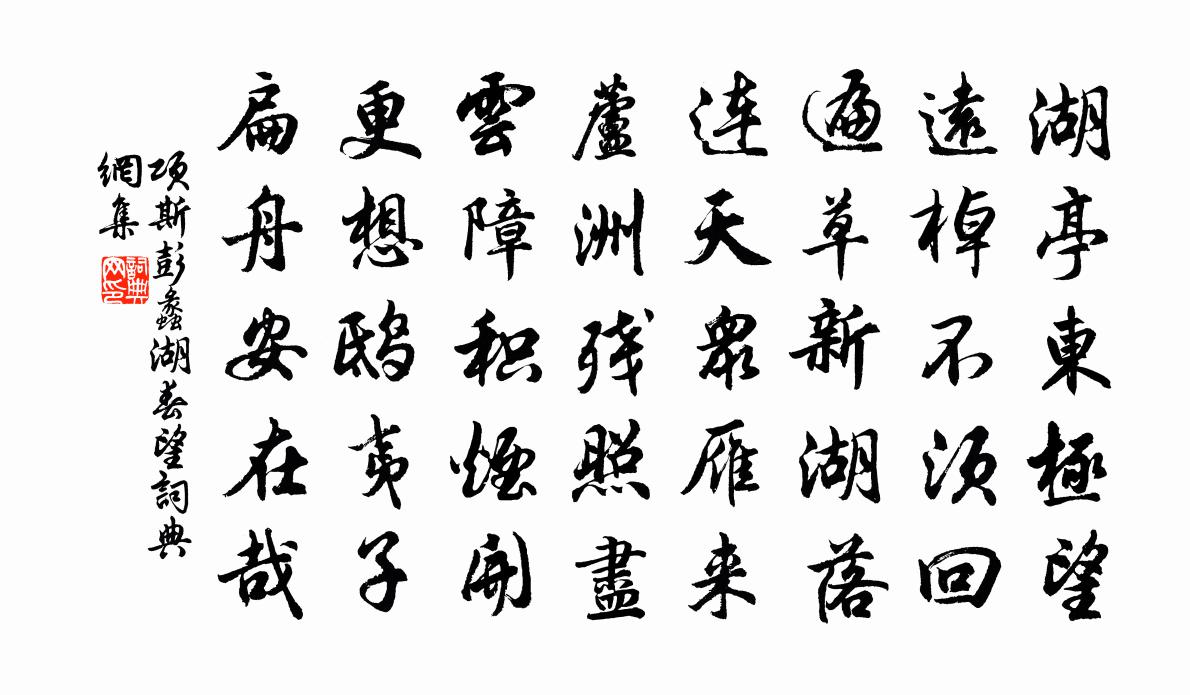 湖亭東極望
遠棹不須回
遍草新湖落
連天衆雁来
蘆洲残照盡
雲障积煙開
更想鴟夷子
扁舟安在哉
項斯彭蠡湖春望詞典
網集
詞典網印